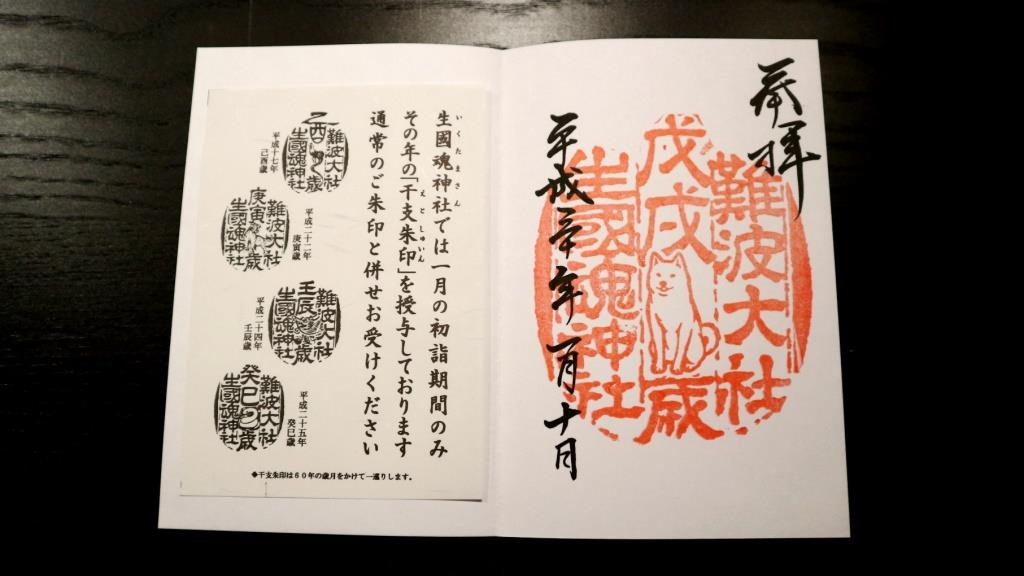 奉拝
難波大社
戊戌歳
生國魂神社
平成三十年一月十日
いくたまさん
生國魂神社では一月の初詣期間のみ
えとしゅいん
その年の「干支朱印」を授与しております
通常のご朱印と併せお受けください
難波大社
乙酉歳
生國魂神社
平成十七年
己酉歳
平成二十二年
庚寅歳
難波大社
庚寅歳
生國魂神社
難波大社
壬辰歳
生國魂神社
平成二十四年
壬辰歳
平成二十五年
癸巳歳
難波大社
癸巳歳
生國魂神社
◆干支朱印は60年の歳月をかけて一巡りします。